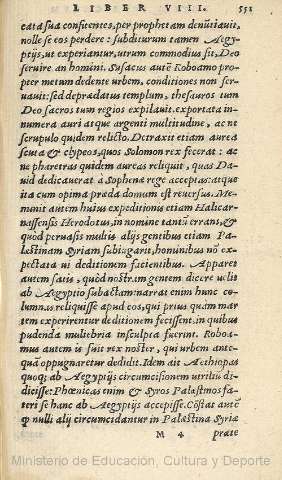 LIBER VIII. 551
cata sua confitentes, per prophetam denūtiauit,
nolle se eos perdere: subditurum tamen Aegy-
ptijs, ut experiantur, utrum commodius sit, Deo
seruire an homini. Susacus autē Roboamo pro-
pter metum dedente urbem, conditiones non ser-
uauit: sed depraedatus templum, thesauros tum
Deo sacros tum regios expilauit. exportata in-
numera auri atque argenti multitudine, ac ne
scrupulo quidem relicto. Detraxit etiam aurea
scuta & clypeos, quos Solomon rex fecerat: ac
ne pharetras quidem aureas reliquit, quas Da-
uid dedicauerat a Sophene rege acceptas: atque
ita cum opima praeda domum est reuersus. Me-
minit autem huius expeditionis etiam Halicar-
nassensis Herodotus, in nomine tantū errans, &
quòd peruasis multis alijs gentibus etiam Pa-
laestinam Syriam subiugarit, hominibus nō ex-
pectata ui deditionem facientibus. Apparet
autem satis, quòd nostram gentem dicere uelit
ab Aegyptio subactam: narrat enim hunc co-
lumnas reliquisse apud eos, qui prius quàm mar
tem experirentur deditionem fecissent, in quibus
pudenda muliebria insculpta fuerint. Roboa-
mus autem is fuit rex noster, qui urbem ante-
quā oppugnaretur dedidit. Idem ait Aethiopas
quoq; ab Aegyptijs circumcisionem uirilium di-
dicisse: Phoenicas enim & Syros Palaestinos fa-
teri se hanc ab Aegyptijs accepisse. Cōstat autē
ꝙ nulli alij circumcidantur in Palaestina Syria
M 4 praete
Ministerio de Educación, Cultura y Deporte